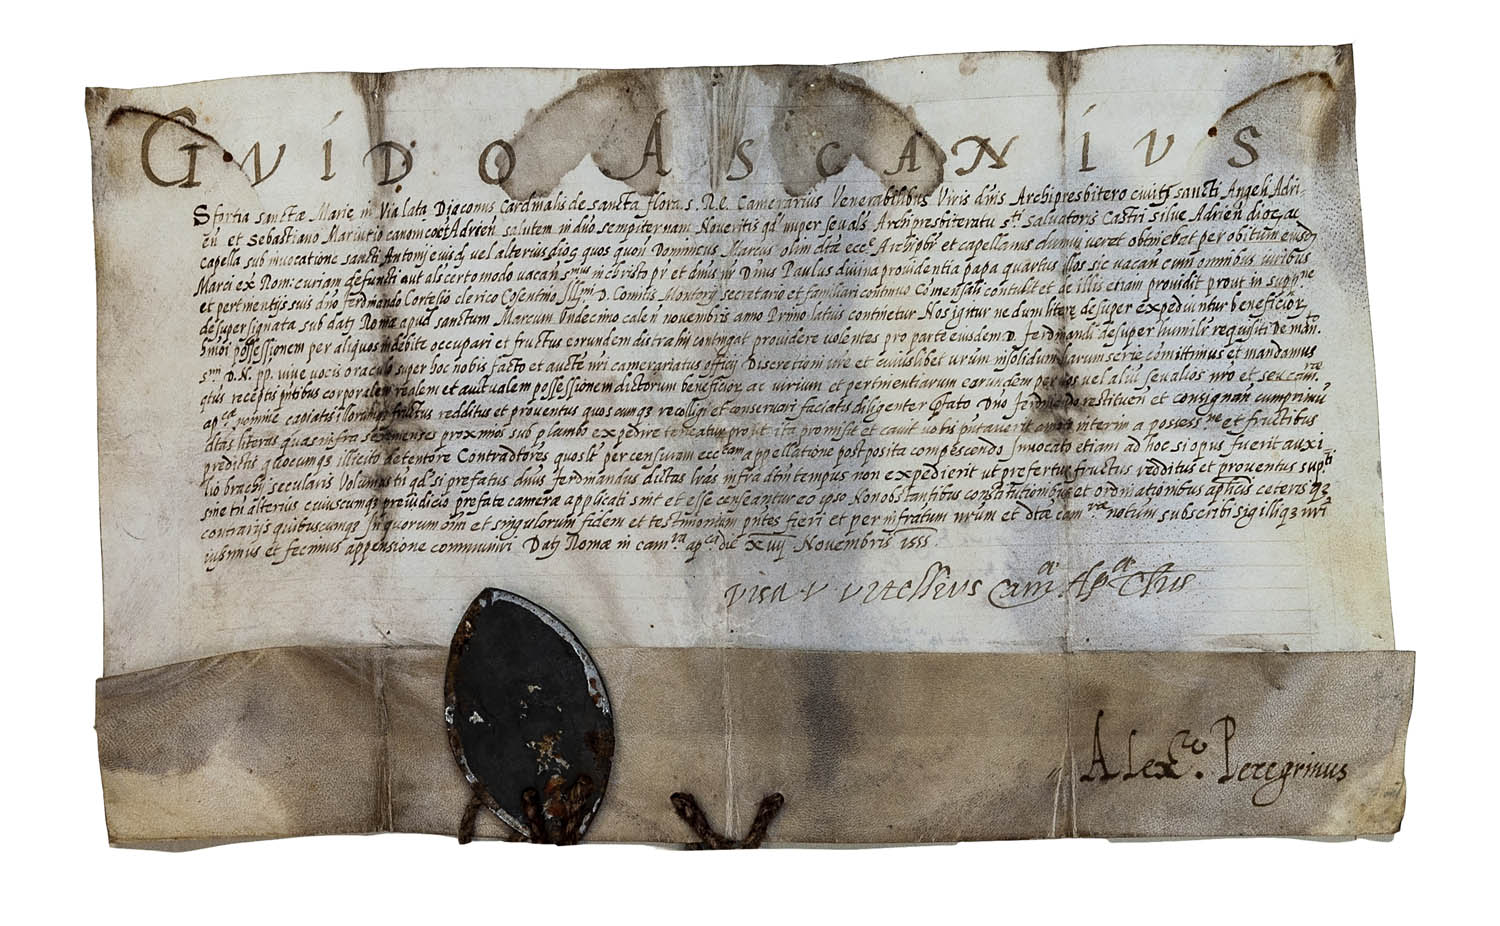 GVIDO ASCANIVS
Sfortia sanctæ Marie in Via lata Diaconus Cardinalis de sancta flora s. R. E. Camerarius Venerabilibus Viris dñis Archipresbitero sancti Angeli Adri-
en̄ et Sebastiano Mariutio canonico Adrien̄ salutem in dño sempiternam Noveritis qd nuper se vals Archipresbiteratu sti Salvatoris Castri silve Adrien̄ dioc ac
capella sub invocatione sancti Antonij eiusd vel alterius dioc quos quon̄ Dominicus Marcus olim dtæ Archipbr et capellanus dum viveret obtinebat per obitum eiusd
Marci ex Rom: curiam defuncti aut als certo modo vacan̄ smus in christo pr et dñus nr Dñus Paulus divina providentia papa quartus illos sic vacan̄ cum omnibus iuribus
et pertinentijs suis dño ferdinando Cortesio clerico Cosentino Illmi D. Comitis Montorij secretario et familiari continuo comensali contulit et de illis etiam providit prout in suppne
desuper signata sub datj Romæ apud sanctum Marcum Undecimo calen̄ novembris anno Primo latius continetur Nos igitur ne dum litere desuper expediuntur beneficior
hmōi possessionem per aliquos indebite occupari et fructus eorundem distrahi contingat providere volentes pro parte eiusdem D. Ferdinandi desuper humilr requisiti De man̄to
smi D. N. pp. vive vocis oraculo super hoc nobis facto et aucte nri camerariatus officij Discretioni vre et cuiuslibet vrum insolidum harum serie comittimus et mandamus
qtus receptis pñtibus corporalem realem et actualem possessionem dictorum beneficior ac iurium et pertinentiarum earundem per vos vel aliū seu alios nro et seu camræ
apca nomine capiatis illorumq fructus redditus et proventus quoscunq recolligi et conservari faciatis diligenter Dno ferdinādo restituen̄ et consignan̄ cum primū
dtas literas quas infra semenses proximos sub plumbo expedire teneatur prout ita promisit et cavit vobis putaverit amoto interim a possessne et fructibus
predictis quocunq illicito detentore Contradtores quoslt per censuram ecccam appellatione postposita compescendo Invocato etiam ad hoc si opus fuerit auxi-
lio brachij secularis Volumus tn qd si prefatus dñus ferdinandus dictas lras infra dtm tempus non expedierit ut prefertur fructus redditus et proventus supti
sine tn alterius cuiuscunq preiudicio prefate cameræ applicati sint et esse censeantur eo ipso Non obstantibus constitutionibus et ordinationibus aplicis ceterisq
contrarijs quibuscunq In quorum oīm et singulorum fidem et testimonium pñtes fieri et per infratum nrum et dtæ camræ notum subscribi sigilliq nri
iussimus et fecimus appensione communiri Datj Romæ in camra apca die xviij Novembris 1555
visa V Vitellius
Alexro. Peregrinus